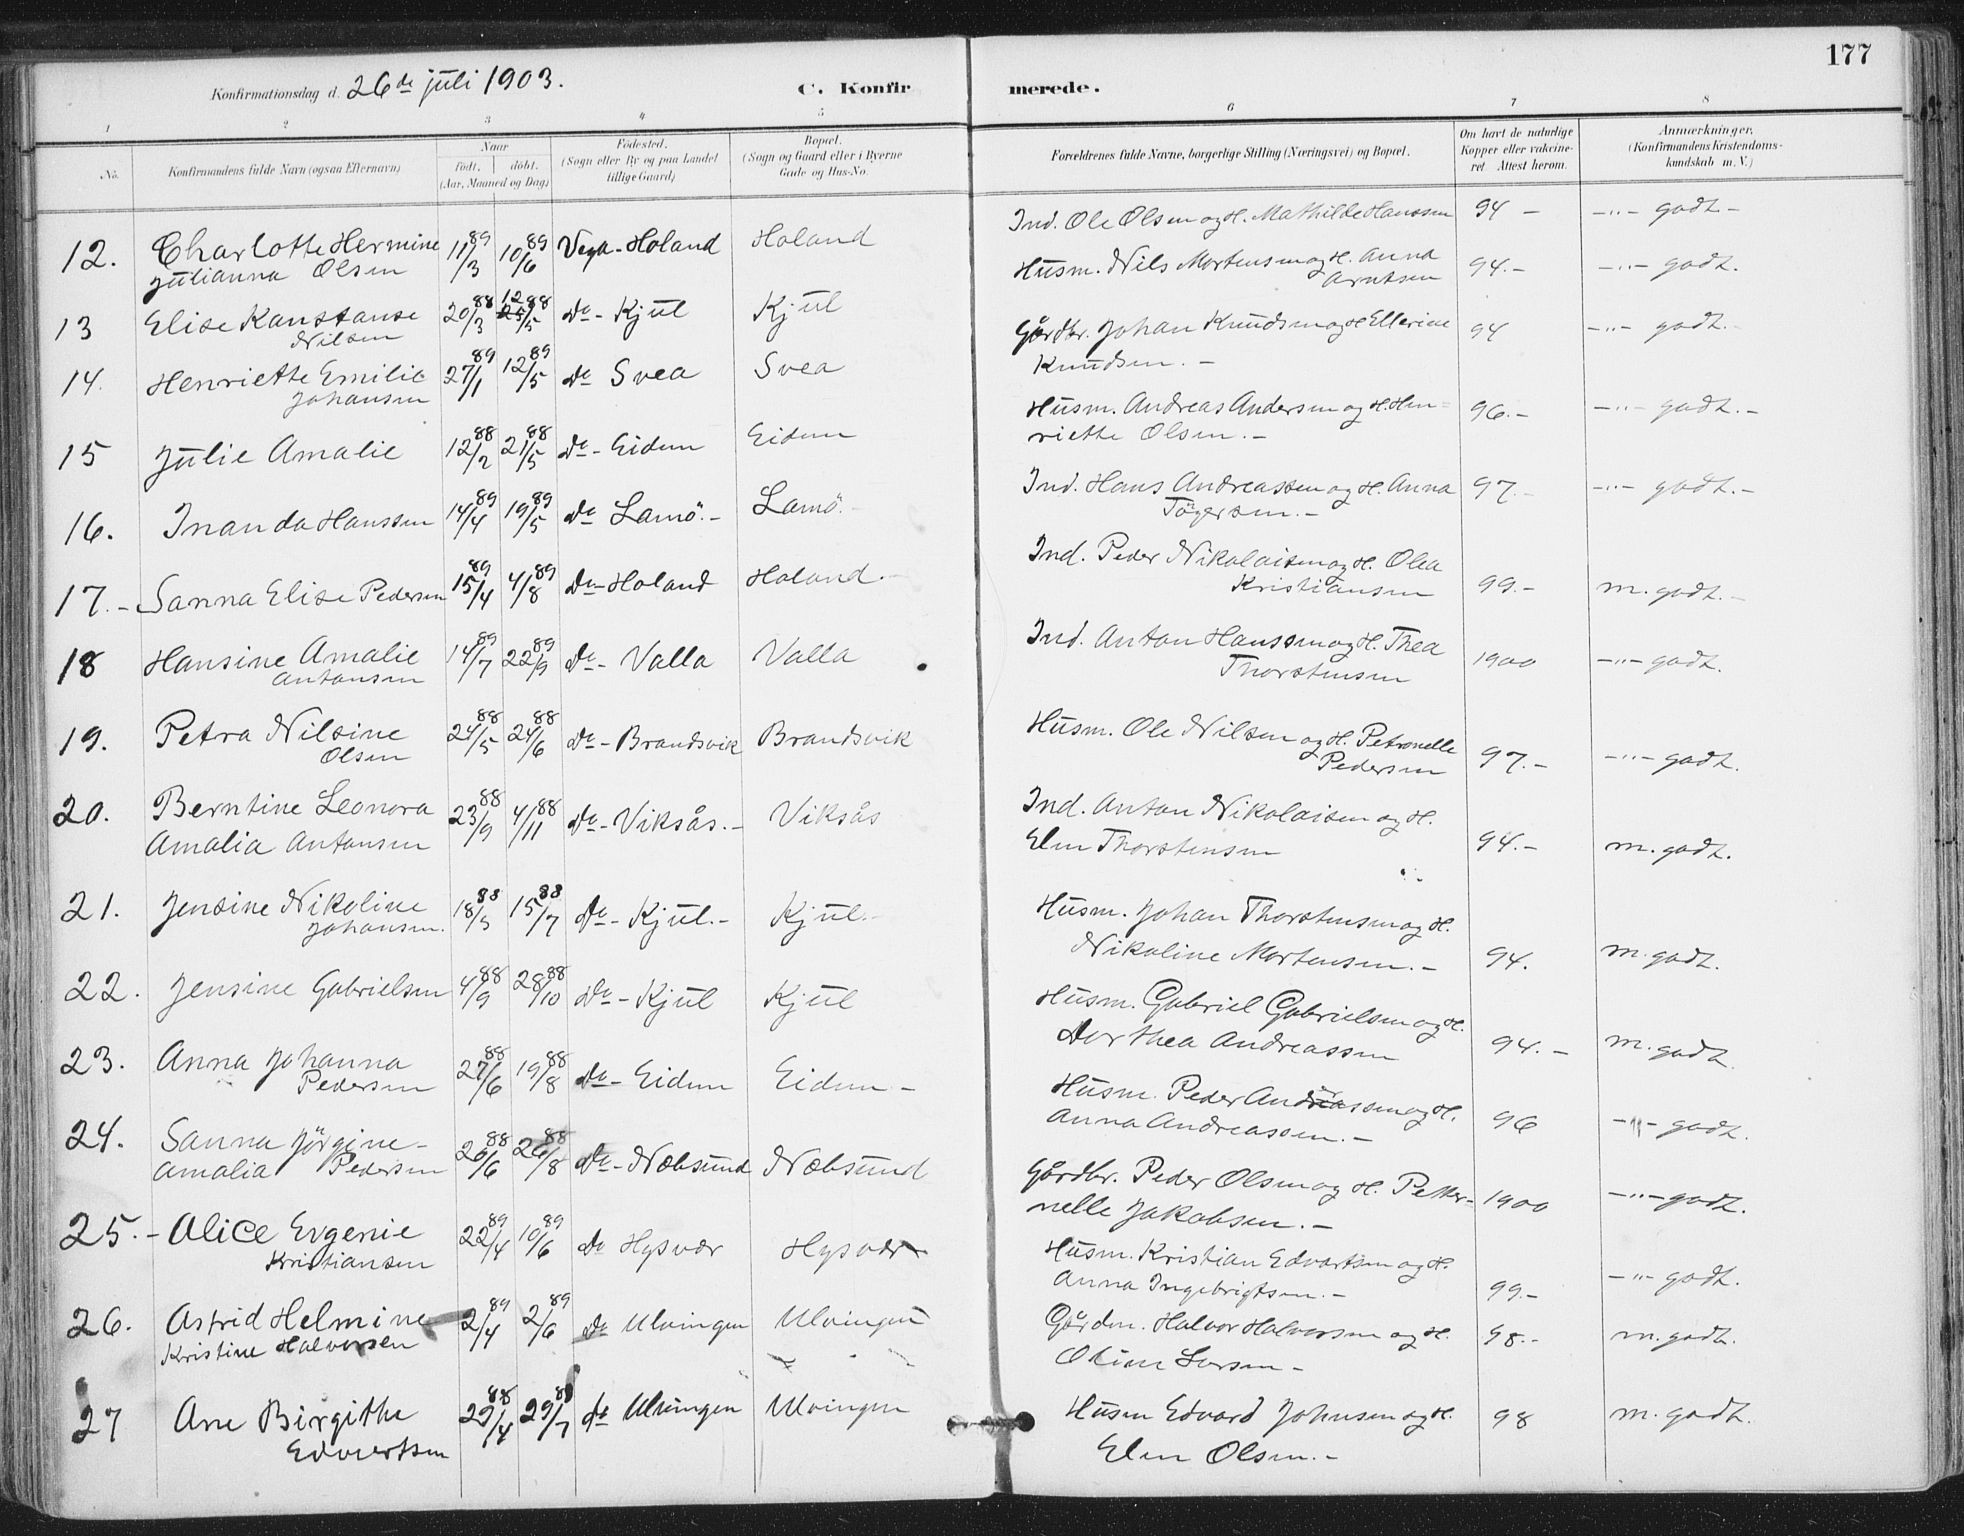 177
Konfirmationsdag d. 26de juli 1903.
C. Konfirmerede.
1 2 3 4 5 6 7 8
No. Konfirmandens fulde Navn (ogsaa Efternavn) Naar født. døbt. (Aar, Maaned og Dag) Fødested. (Sogn eller By og paa Landet tillige Gaard) Bopæl. (Sogn og Gaard eller i Byerne Gade og Hus-No. Forældrenes fulde Navne, borgerlige Stilling (Næringsvei) og Bopæl. Om havt de naturlige Kopper eller vaccineret Attest herom. Anmærkninger. (Konfirmandens Kristendomskundskab m. V.)
12. Charlotte Hermine 11/3 89 10/6 89 Vega - Holand Holand Ind. Ole Olsen og H. Mathilde Hanssen 94 - -"- godt -
Julianna Olsen
13 Elise Kanstanse 20/3 88 12/5 88 Do - Kjul Kjul Husm. Nils Mortensen og H. Anna 94.- -"- godt.
Nilsen Arntsen
14. Henriette Emilie 27/1 89 12/5 89 Do Svea Svea Gårdbr. Johan Knudsen og H Ellerine 94 -"- godt.
Johansen Knudsen. -
15 Julie Amalie 12/2 88 21/5 88 Do - Eidem Eidem Husm. Andreas Andersen og H. Hen- 96.- -"- godt.-
riette Olsen.-
16. Inanda Hanssen 14/4 89 19/5 89 Do Lamö.- Lamö. Ind. Hans Andreassen og H. Anna 97.- -"- godt.-
Tögersen.-
17.- Sanna Elise Pedersen 15/4 89 4/8 89 Do - Holand Holand.- Ind. Peder Nikolaisen og H. Olea 99.- m. godt.-
Kristiansen
18 Hansine Amalie 14/7 89 22/9 89 Do - Valla Valla Ind. Anton Hanssen og H. Thea 1900 -"- godt.
Antonsen Thorstensen
19. Petra Nilsine 24/5 88 24/6 88 Do - Brandsvik Brandsvik Husm. Ole Nilsen og H. Petronelle 97.- -"- godt.
Olsen Pedersen
20. Berntine Leonora 23/9 88 4/11 88 Do - Viksås.- Viksås Ind. Anton Nikolaisen og H.
Amalia Antonsen Elen Thorstensen 94.- m. godt.
21. Jensine Nikoline 18/5 88 15/7 88 Do - Kjul.- Kjul.- Husm. Johan Thorstensen og H.
Johansen. Nikoline Mortensen.- 94. m. godt.
22. Jensine Gabrielsen 4/9 88 28/10 88 Do - Kjul Kjul Husm. Gabriel Gabrielsen og H.
Dorthea Andreassen 94.- m. godt.
23. Anna Johanna 27/6 88 19/8 88 Do - Eidem Eidem - Husm. Peder Andreassen og H.
Pedersen Anna Andreassen.- 96 -"- godt.
24. Sanna Jörgine - 26/6 88 26/8 88 Do - Næbsund Næbsund Gårdbr. Peder Olsen og H. Petter- 1900 -"- godt.
Amalia Pedersen nelle Jakobsen.-
25.- Alice Evgenie 22/4 89 10/6 89 Do Hysvær Hysvær Husm. Kristian Edvartsen og H.
Kristiansen Anna Ingebrigtsen.- 99.- -"- godt.
26. Astrid Helmine 2/4 89 2/6 89 Do Ulvingen Ulvingen Halvor Halvorsen og H. 98.- m. godt.
Kristine Halvorsen
27 Ane Birgithe 29/4 88 29/7 88 do Ulvingen Ulvingen Husm Edvard Johnsen og H. 98 m. godt.
Edvartsen Elen Olsen.-